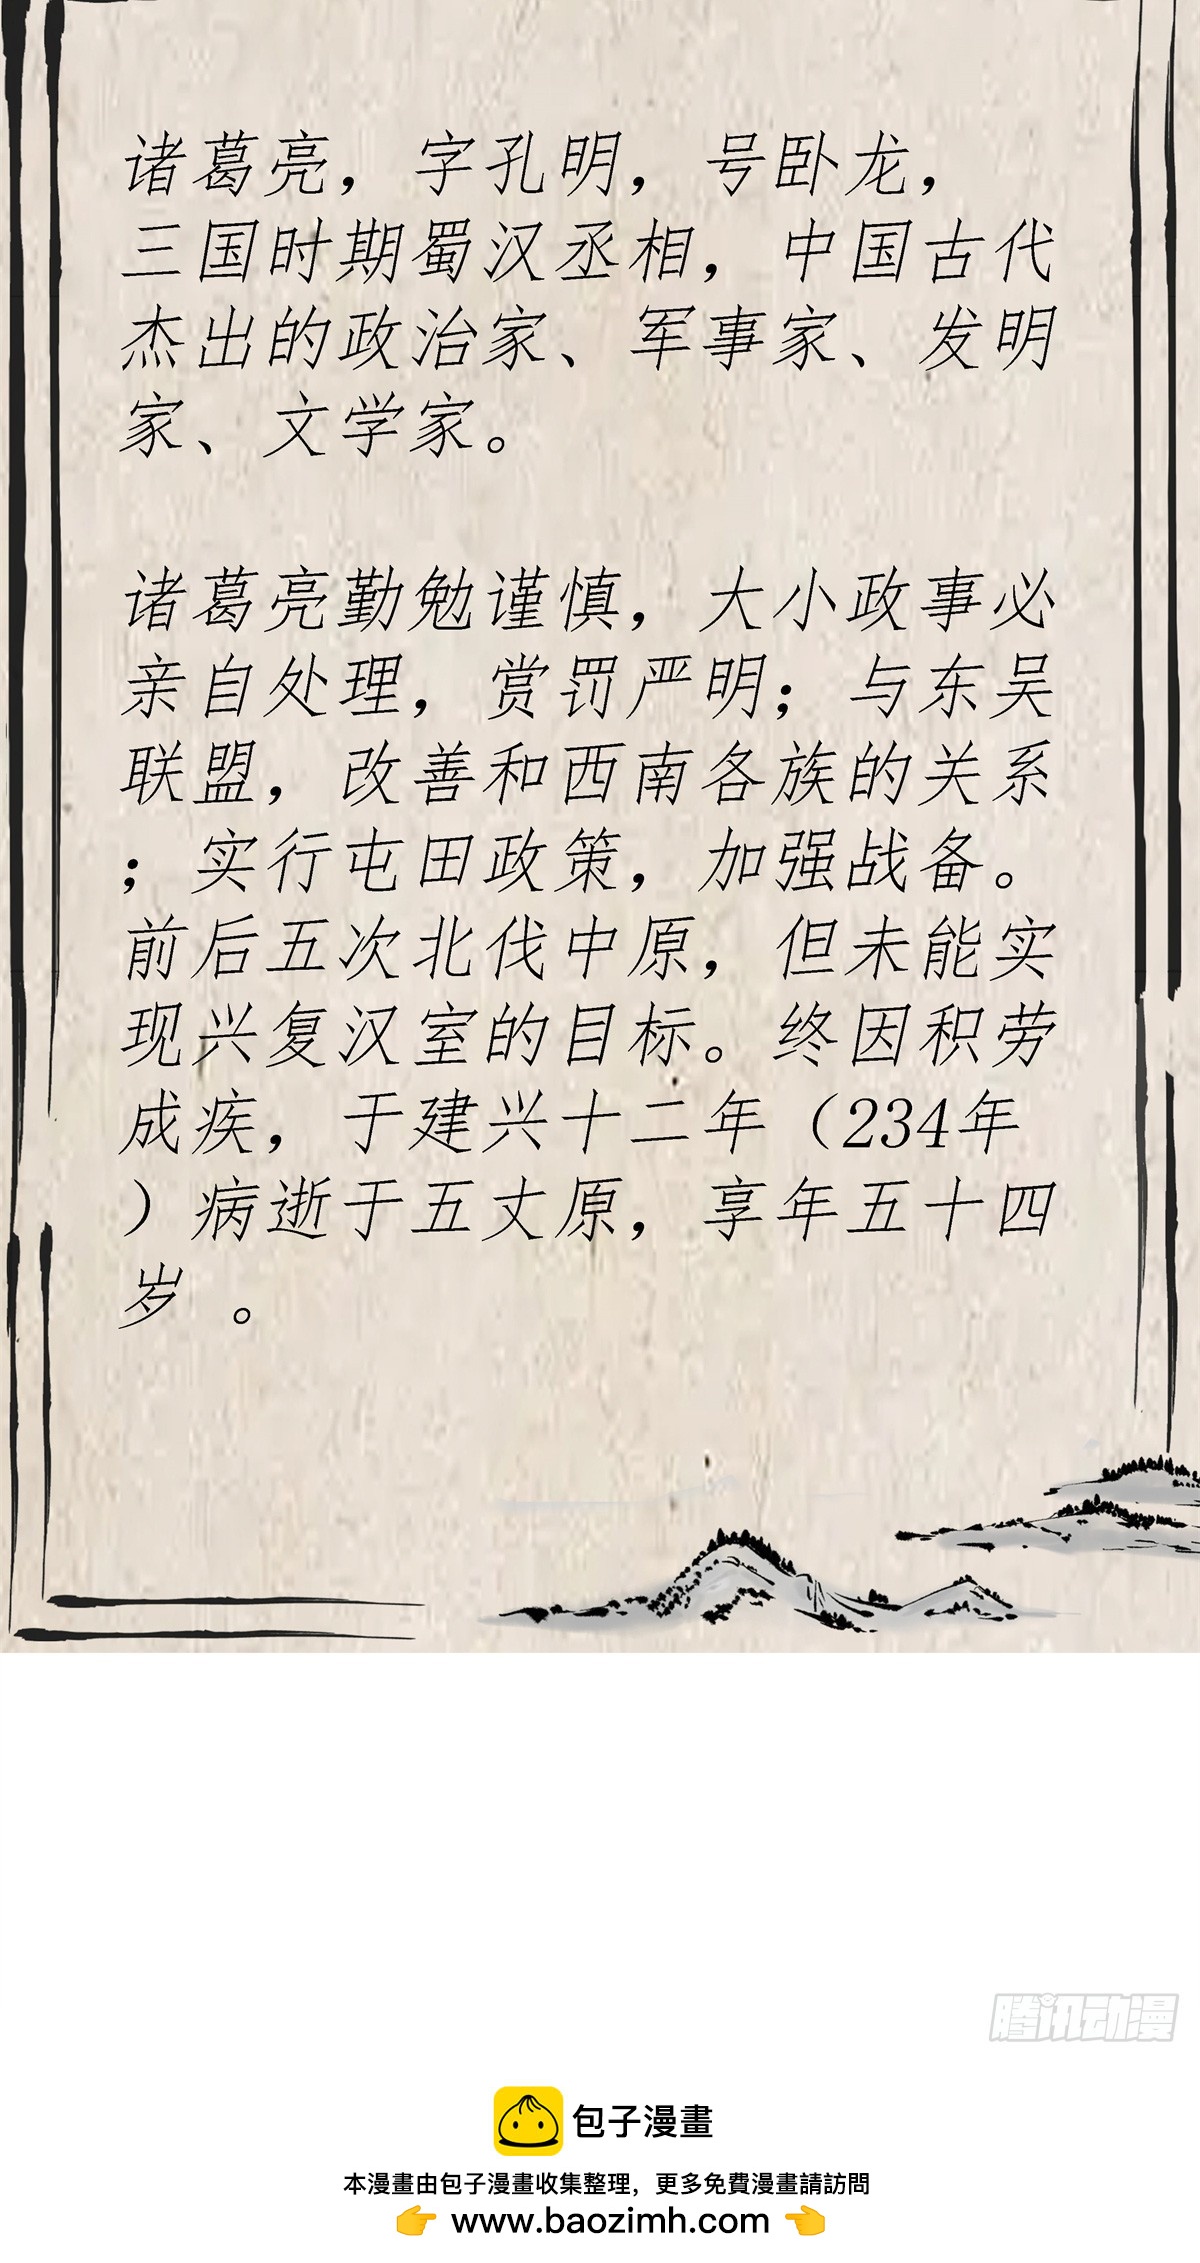 诸葛亮，字孔明，号卧龙，
三国时期蜀汉丞相，中国古代
杰出的政治家、军事家、发明
家、文学家。
诸葛亮勤勉谨慎，大小政事必
亲自处理，赏罚严明；与东吴
联盟，改善和西南各族的关系
；实行屯田政策，加强战备。
前后五次北伐中原，但未能实
现兴复汉室的目标。终因积劳
成疾，于建兴十二年（234年
）病逝于五丈原，享年五十四
岁 。
腾讯动漫
包子漫畫
本漫畫由包子漫畫收集整理，更多免費漫畫請訪問
👉 www.baozimh.com 👈